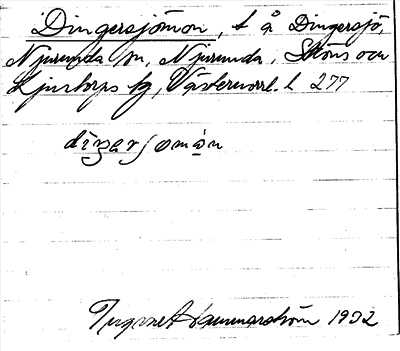 Dingersjömon, t å Dingersjö,
Njurunda sn, Njurunda, Sköns och
Ljustorps tg, Västernorrl. l 277
diŋarʃomàn
Hammarström 1932